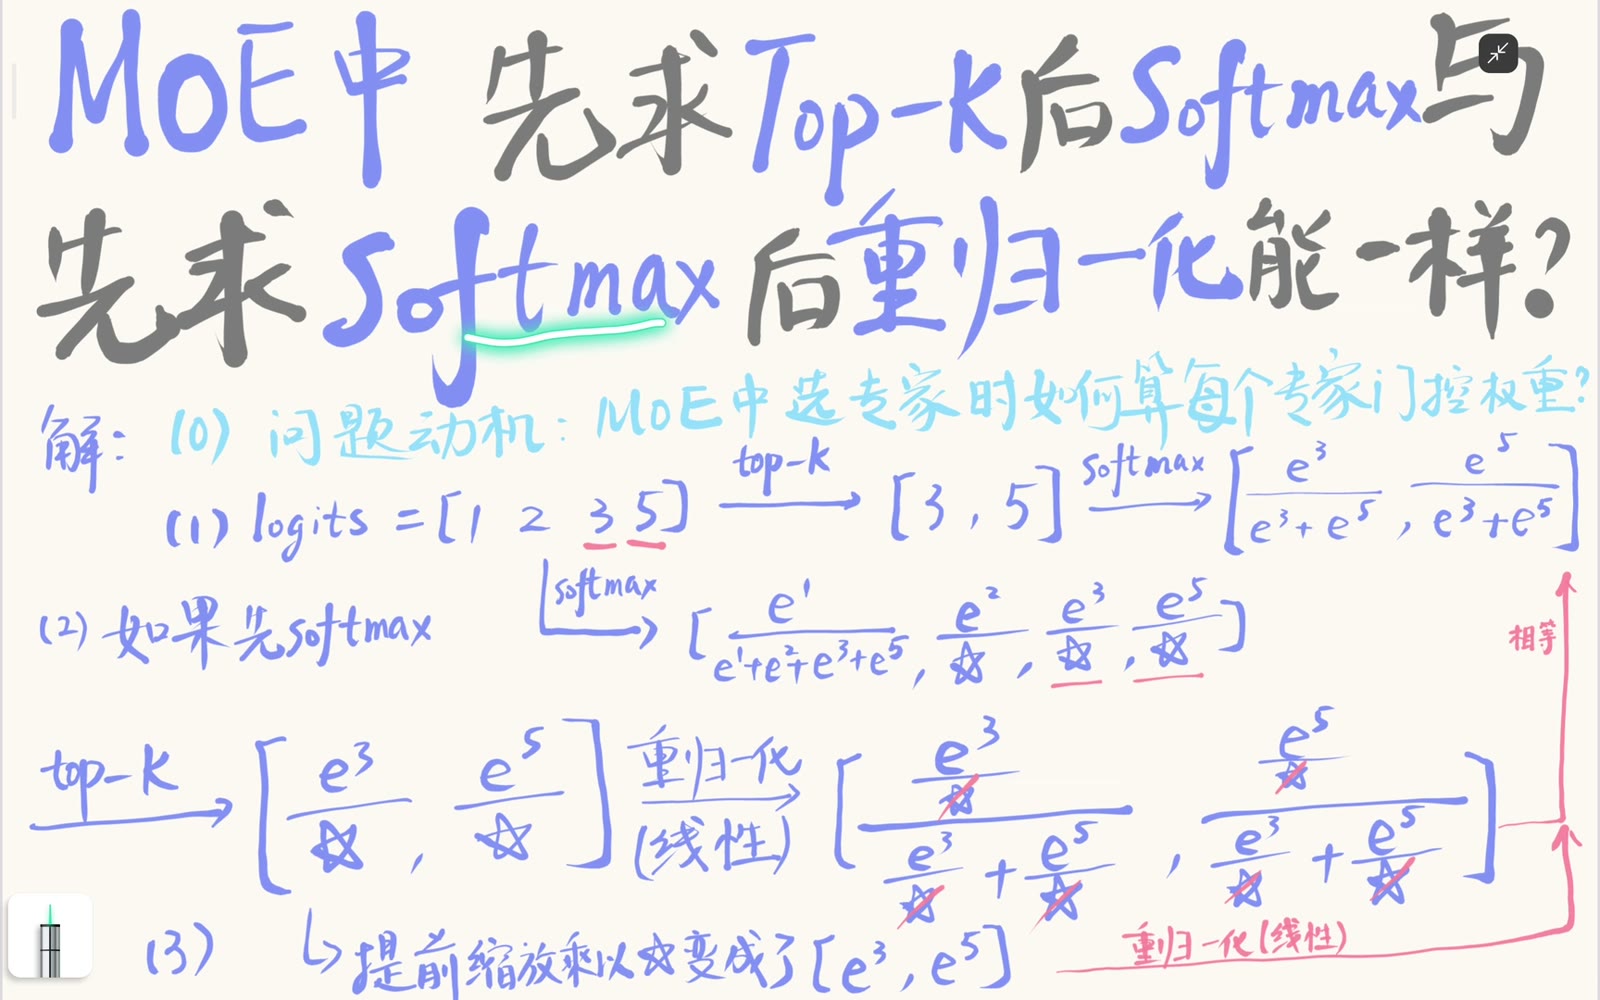 MoE中 先求Top-K后Softmax与
先求Softmax后重归一化能一样?
解: (0) 问题动机: MoE中选专家时如何算每个专家门控权重?
(1) logits = [1 2 3 5] top-k → [3, 5] softmax → [e³/(e³+e⁵), e⁵/(e³+e⁵)]
(2) 如果先softmax softmax → [e¹/(e¹+e²+e³+e⁵), e²/☆, e³/☆, e⁵/☆]
相等
top-K → [e³/☆, e⁵/☆] 重归一化(线性) → [(e³/☆)/(e³/☆ + e⁵/☆), (e⁵/☆)/(e³/☆ + e⁵/☆)]
(3) ↳ 提前缩放乘以☆变成了[e³, e⁵] 重归一化(线性)